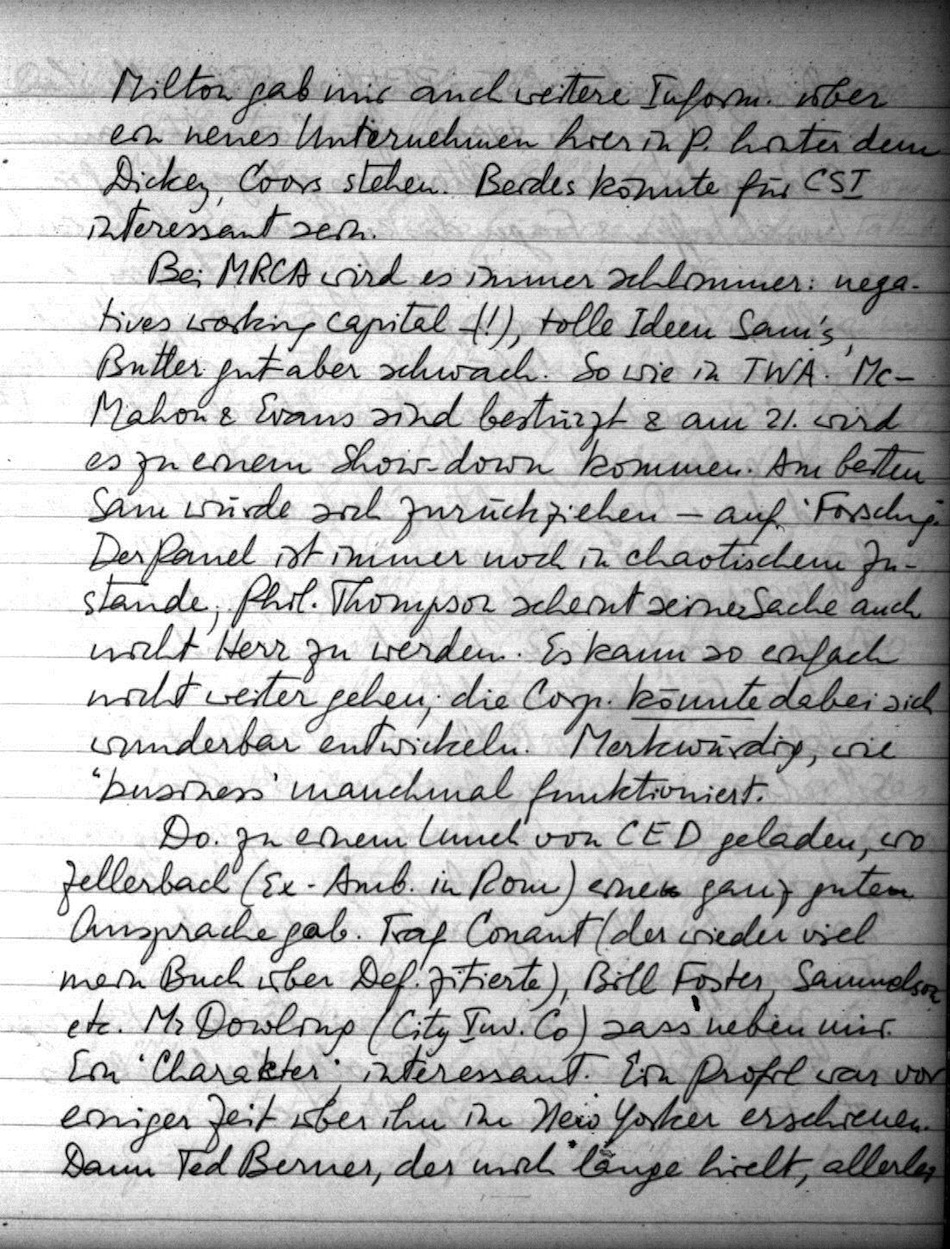 Milton gab mir auch weitere Inform. über
ein neues Unternehmen hier in P. hinter dem
Dickey, Coors stehen. Beides könnte für CSI
interessant sein.
Bei MRCA wird es immer schlimmer: nega-
tives working capital (!), tolle Ideen Sam's,
Butler gut aber schwach. So wie in TWA. Mc-
Mahon & Evans sind bestürzt & am 21. wird
es zu einem Show-down kommen. Am besten
Sam würde sich zurückziehen – auf 'Forschg.'
Der Panel ist immer noch in chaotischem Zu-
stande, Phil. Thompson scheint seiner Sache auch
nicht Herr zu werden. Es kann so einfach
nicht weiter gehen; die Corp. könnte dabei sich
wunderbar entwickeln. Merkwürdig, wie
'business' manchmal funktioniert.
Do. zu einem Lunch von CED geladen, wo
Zellerbach (Ex-Amb. in Rom) eine ganz guten
Ansprache gab. Traf Conant (der wieder viel
mein Buch über Def. zitierte), Bill Foster, Samuelson
etc. Mr Dowling (City Inv. Co) sass neben mir.
Ein 'Charakter', interessant. Ein Profil war vor
einiger Zeit über ihn im New Yorker erschienen.
Dann Ted Berner, der mich lange hielt, allerlei